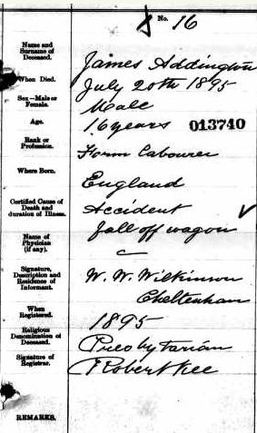 No. 16
Name and Surname of Deceased. James Addington
When Died. July 20th 1895
Sex—Male or Female. Male
Age. 16 years 013740
Rank or Profession. Farm Labourer
Where Born. England
Certified Cause of Death and duration of Illness. Accident
fall off wagon
Name of Physician (if any). —
Signature, Description and Residence of Informant. W. W. Wilkinson
Cheltenham
When Registered. 1895
Religious Denomination of Deceased. Presbytarian
Signature of Registrar. Robert Kee
REMARKS.